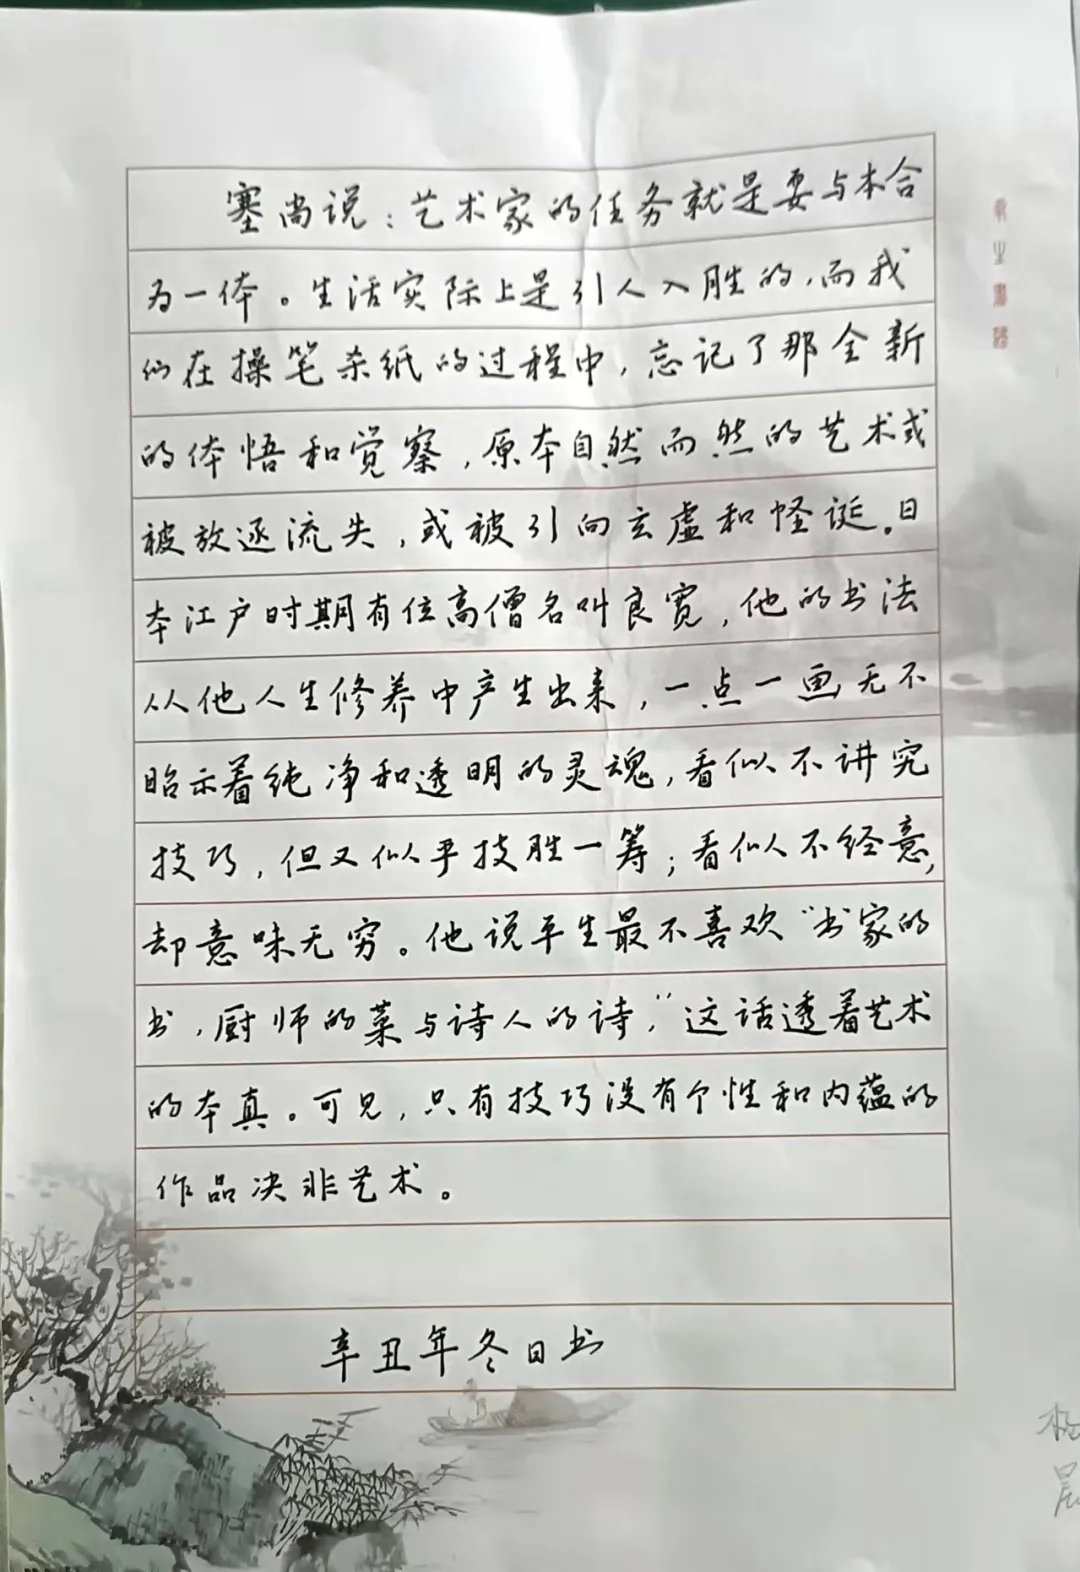 塞尚说：艺术家的任务就是要与本合
为一体。生活实际上是引人入胜的，而我
们在操笔杂纸的过程中，忘记了那全新
的体悟和觉察，原本自然而然的艺术或
被放逐流失，或被引向玄虚和怪诞。日
本江户时期有位高僧名叫良宽，他的书法
从他人生修养中产生出来，一点一画无不
昭示着纯净和透明的灵魂，看似不讲究
技巧，但又似乎技胜一筹；看似不经意，
却意味无穷。他说平生最不喜欢“书家的
书，厨师的菜与诗人的诗，”这话透着艺术
的本真。可见，只有技巧没有个性和内蕴的
作品决非艺术。
辛丑年冬日书